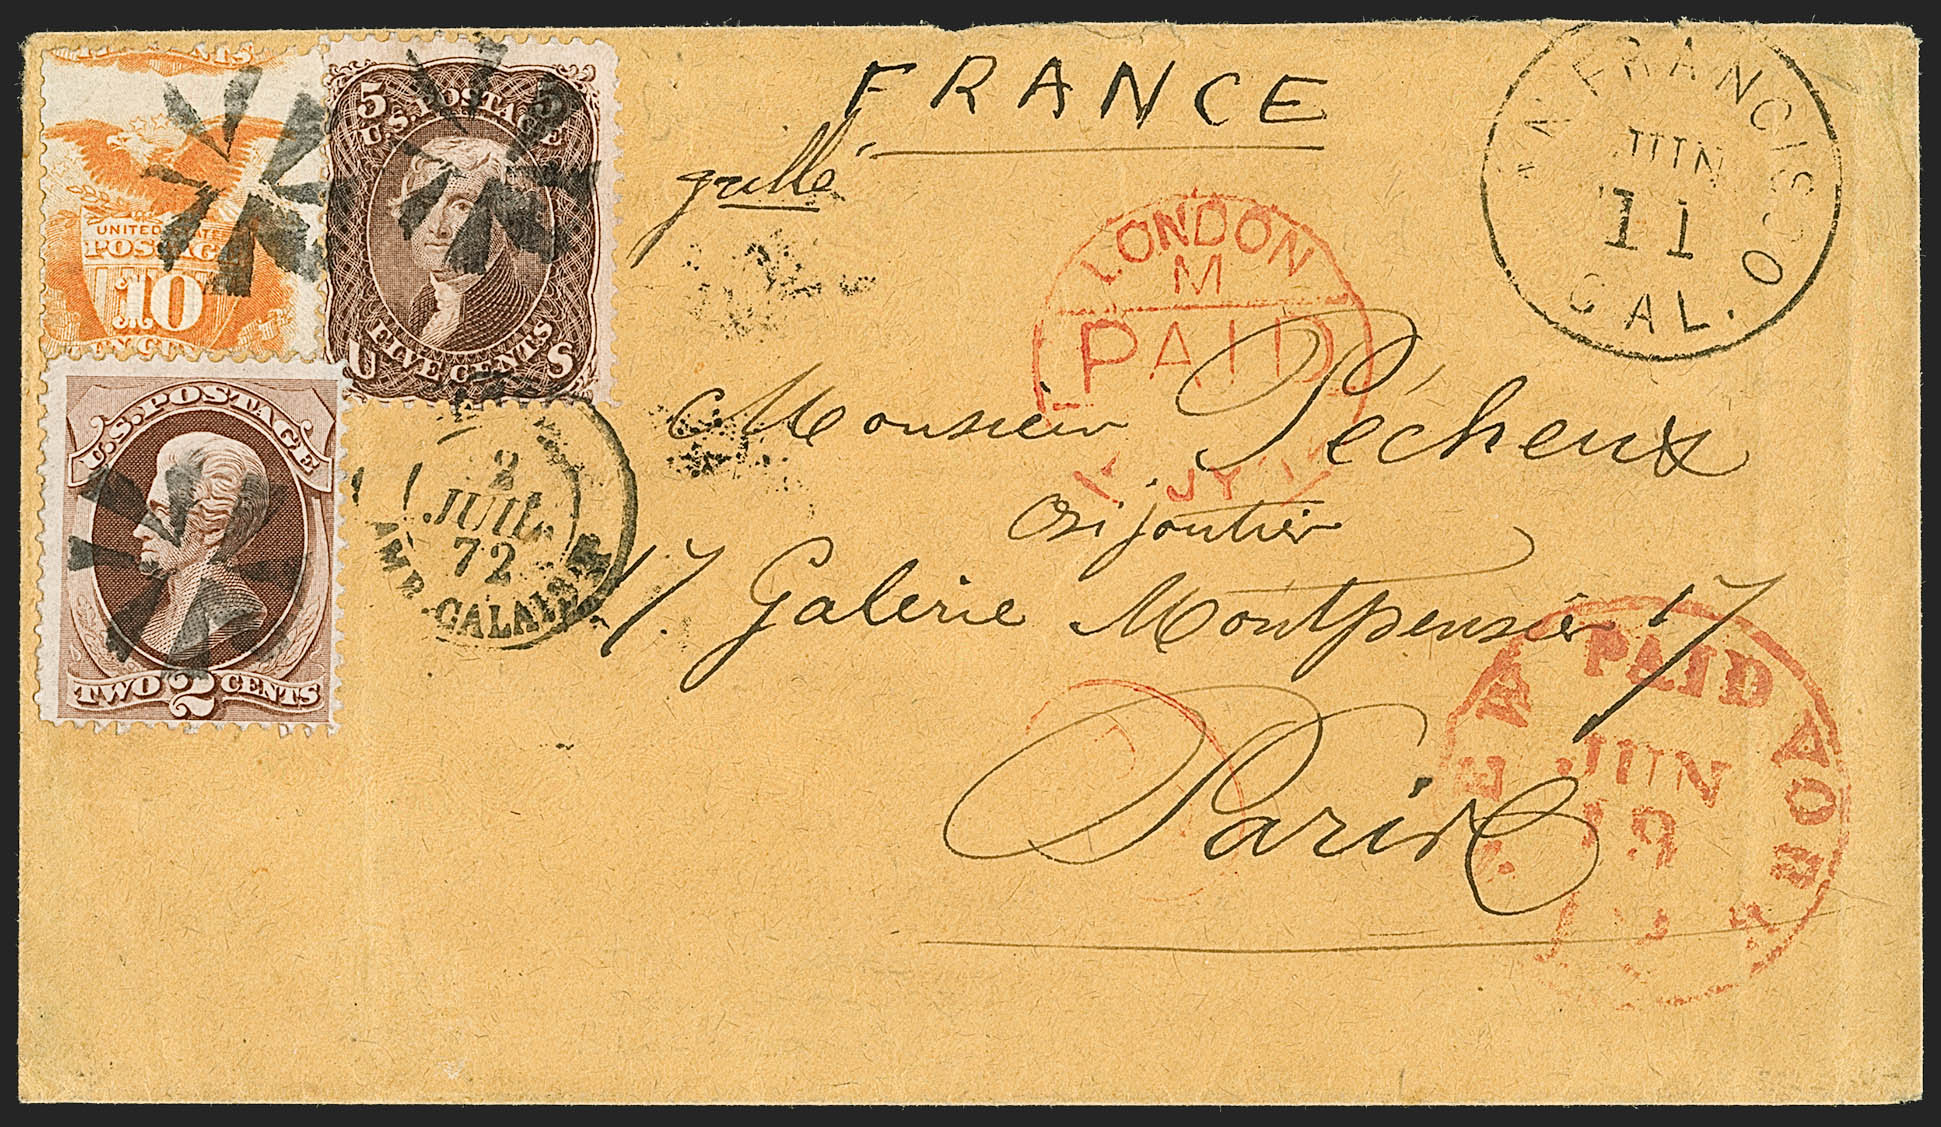 FRANCE
grillé
5 U.S. POSTAGE 5
U FIVE CENTS S
UNITED STATES
POSTAGE
10
U.S. POSTAGE
TWO 2 CENTS
SAN FRANCISCO
JUN
11
CAL.
LONDON
M
PAID
JY
2
JUIL.
72
AMB. CALAIS
Monsieur Pécheux
Bijoutier
17 Galerie Montpensier 17
Paris
NEW YORK
PAID
JUN
19